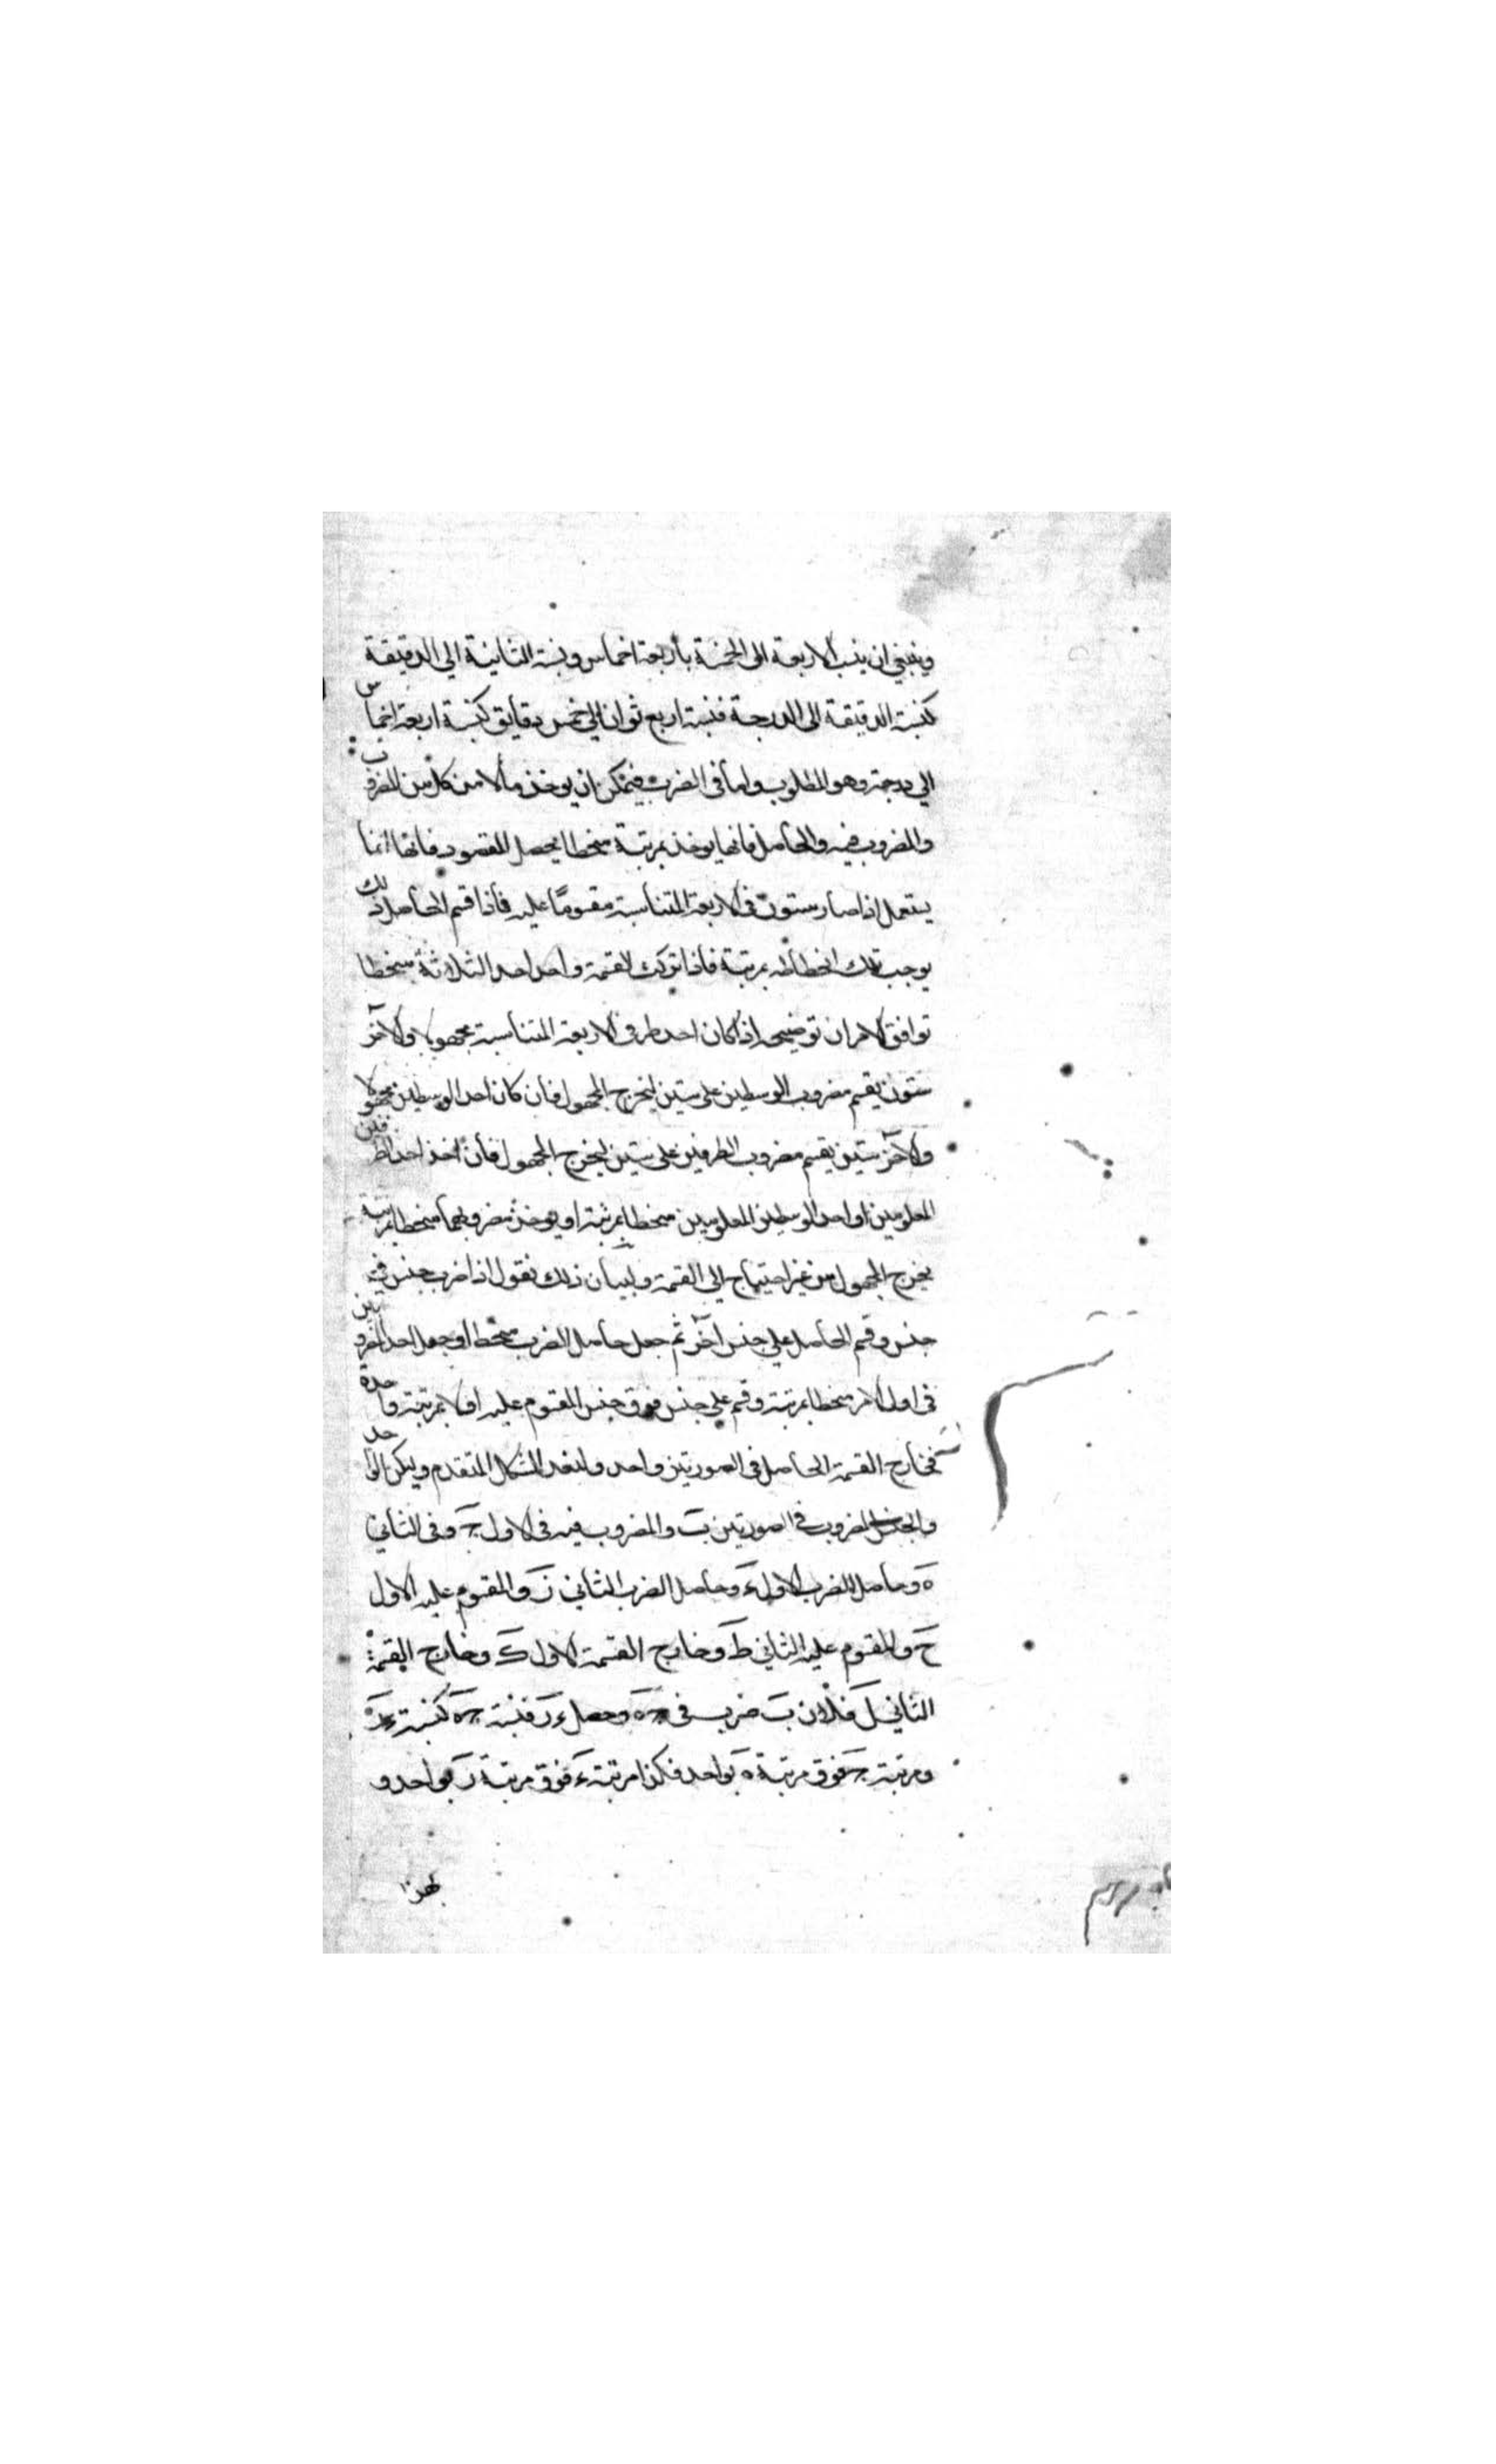 وينبغي ان ينسب الاربعة الى الخمسة بأربعة اخماس ونسبة الثانية الي الدقيقة
كنسبة الدقيقة الى الدرجة فنسبة اربع ثوان الي خمس دقايق كنسبة اربعة اخماس
الي درجة وهو المطلوب واما في الضرب فيمكن ان يوخذ مالا من كل من المضروب
والمضروب فيه والحاصل فانها يوخذ بمرتبة منحطا يحصل المقصود فانها انما
يستعمل اذا صار ستون في الاربعة المتناسبة مقسومًا عليه فاذا قسم الحاصل ذلك
يوجب تلك انحطاطه بمرتبة فاذا تركت القسمة واحد احد الثلاثة منحطا
توافق الامران توضيحه اذا كان احد طرفي الاربعة المتناسبة مجهولا والآخر
ستون يقسم مضروب الوسطين على ستين ليخرج المجهول فأن كان احد الوسطين مجهولا
والآخر ستين يقسم مضروب الطرفين على ستين ليخرج المجهول فأن اخذ احد الطرفين
المعلومين او احد الوسطين المعلومين منحطا بمرتبة او يوخذ مضروبهما منحطا بمرتبة
يخرج المجهول من غير احتياج الي القسمة ولبيان ذلك نقول اذا ضرب جنس في
جنس وقسم الحاصل علي جنس آخر ثم جعل حاصل الضرب منحطا او جعل احد المضروبين
في اول الامر منحطا بمرتبة وقسم علي جنس فوق جنس المقسوم عليه اولا بمرتبة واحدة
فخارج القسمة الحاصل في الصورتين واحد ولنعد الشكل المتقدم وليكن الواحد
والجنس المضروب في الصورتين ب والمضروب فيه في الاول ج وفي الثاني
ه وحاصل الضرب الاول ء وحاصل الضرب الثاني ز والمقسوم عليه الاول
ح والمقسوم عليه الثاني ط وخارج القسمة الاول ك وخارج القسمة
الثاني ل فلان ب ضرب في ج ه وحصل ء ز فنسبة ج ه كنسبة ء ز
ومرتبة ج فوق مرتبة ه بواحد فكذا مرتبة ء فوق مرتبة ز بواحد و
لهذا